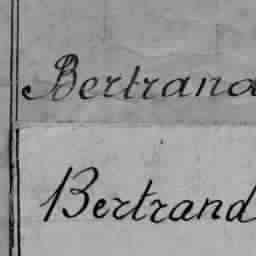 Bertrand
Bertrand